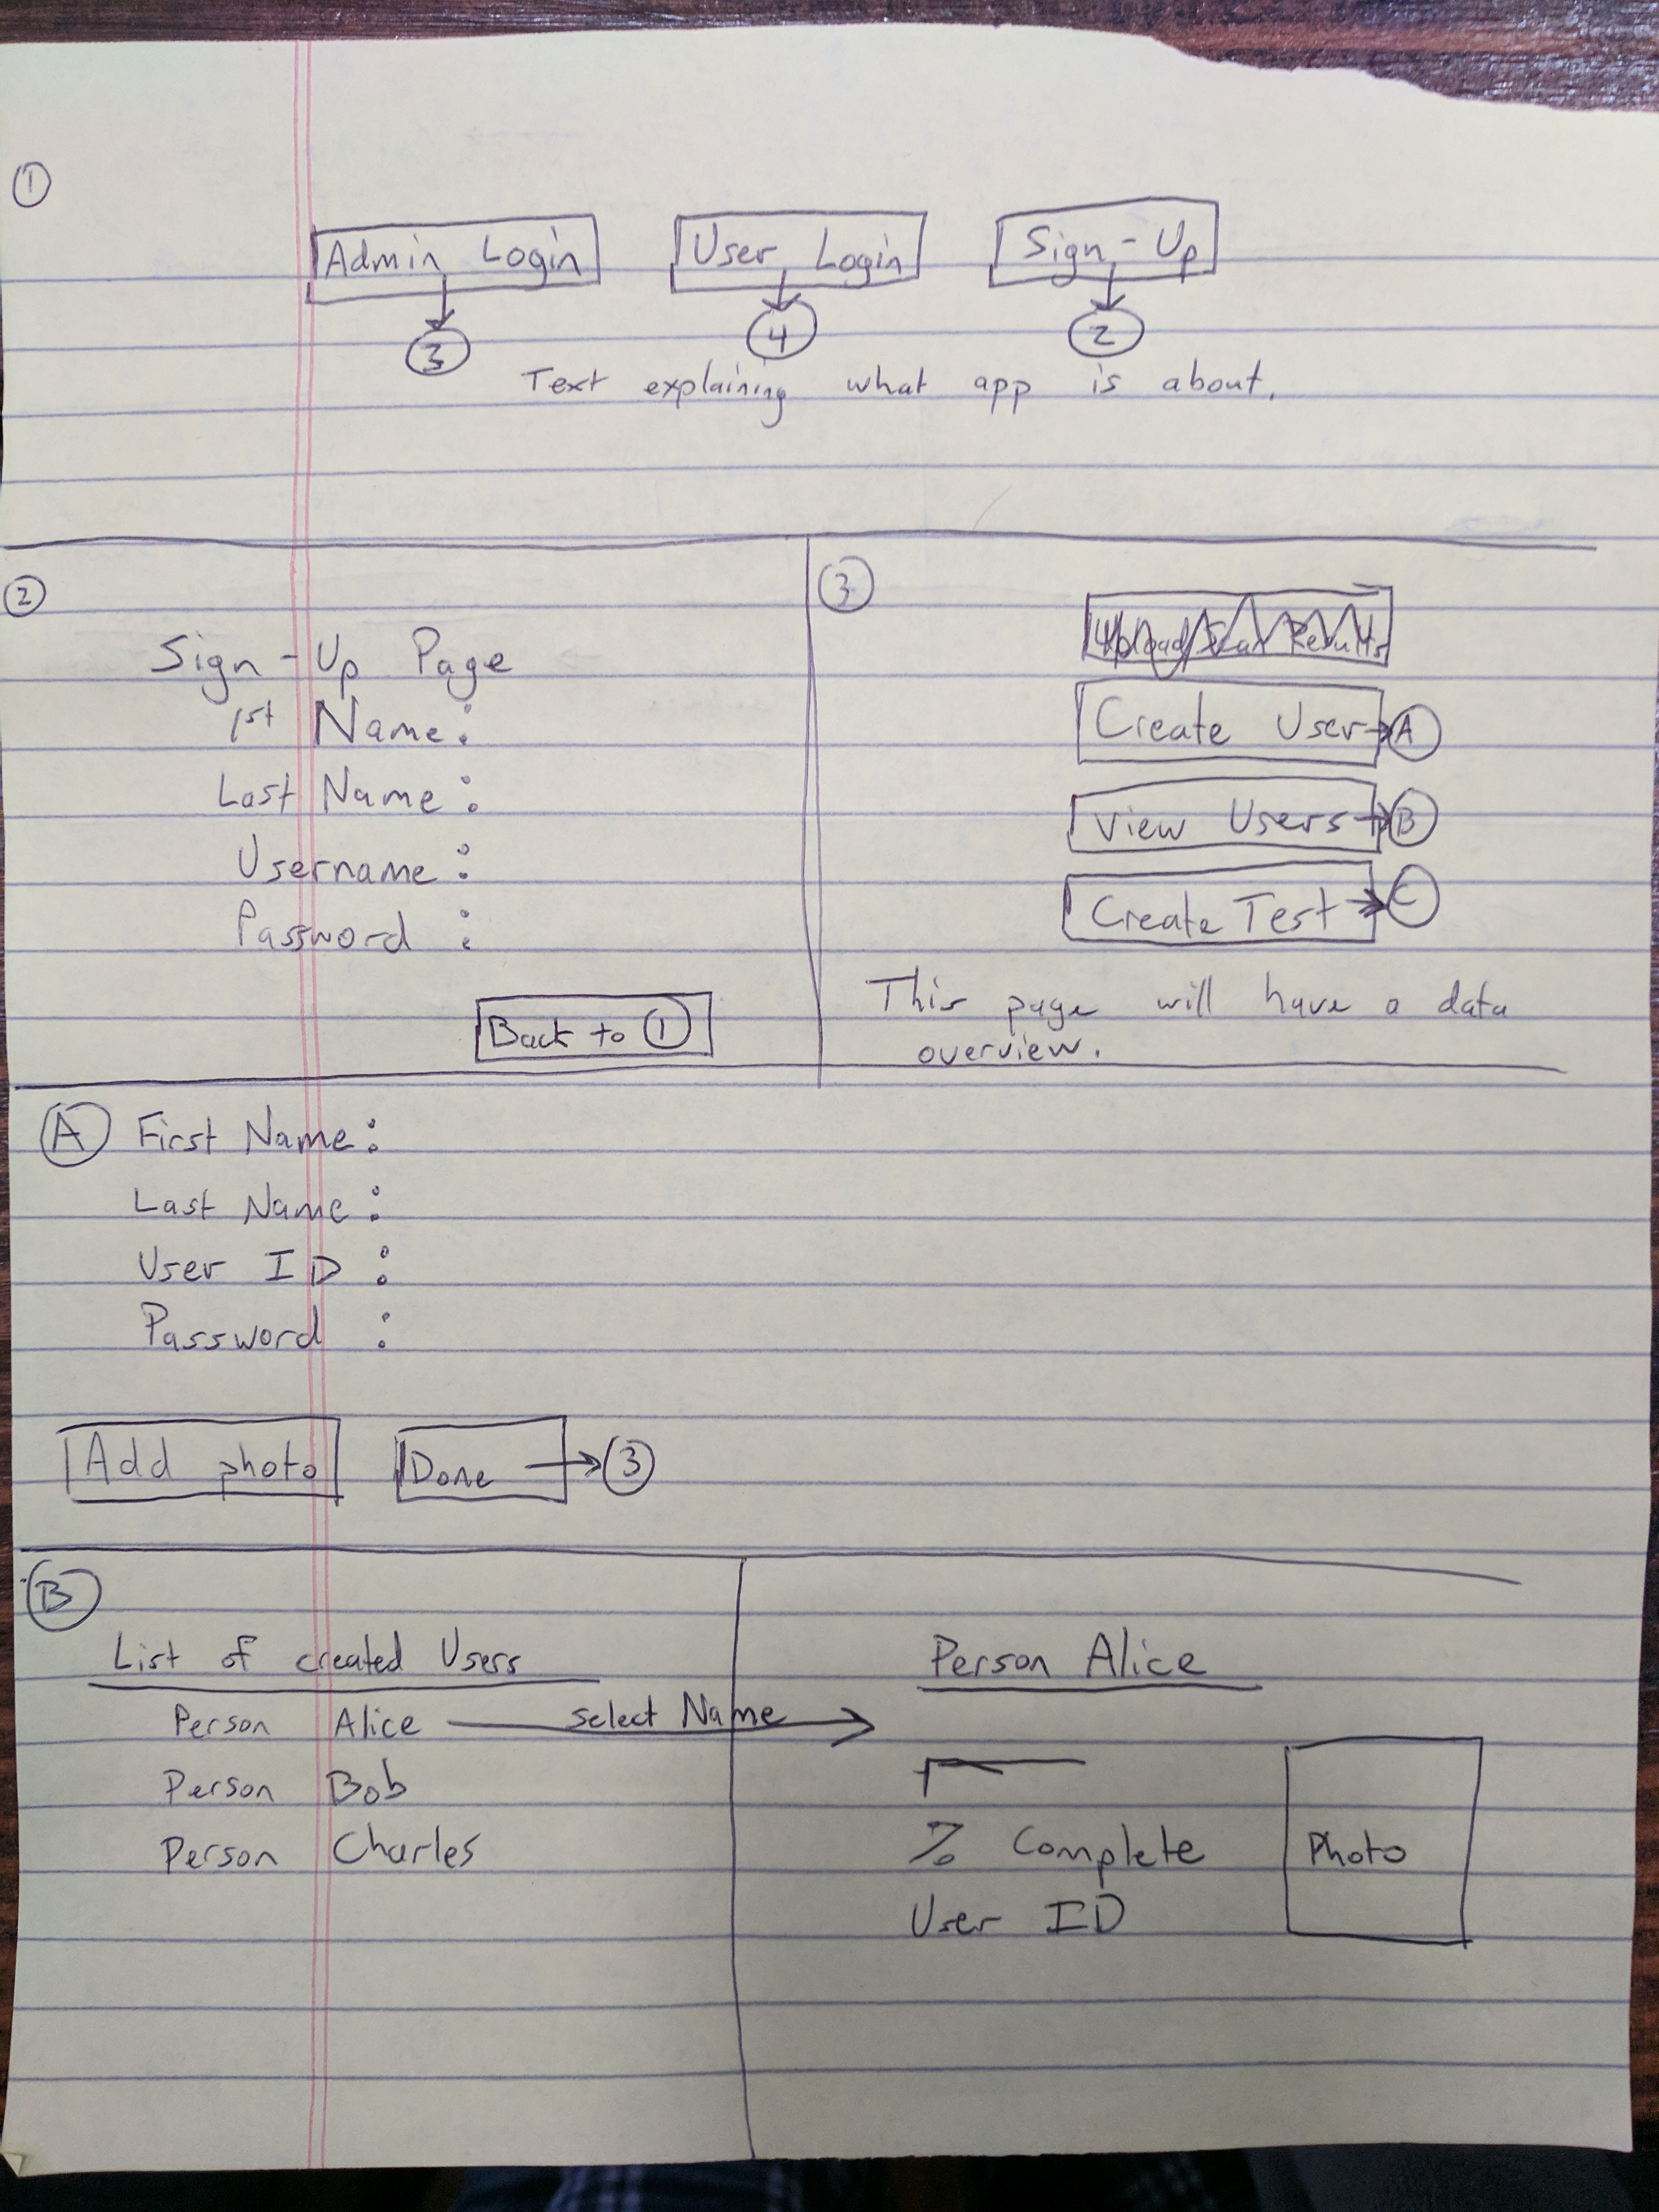 1
Admin Login
User Login
Sign-Up
3
4
2
Text explaining what app is about.
2
Sign-Up Page
1st Name:
Last Name:
Username:
Password :
Back to 1
3
Upload/Scan Results
Create User A
View Users B
Create Test C
This page will have a data
overview.
A First Name:
Last Name:
User ID :
Password :
Add photo
Done 3
B
List of created Users
Person Alice select Name
Person Bob
Person Charles
Person Alice
% Complete
User ID
Photo